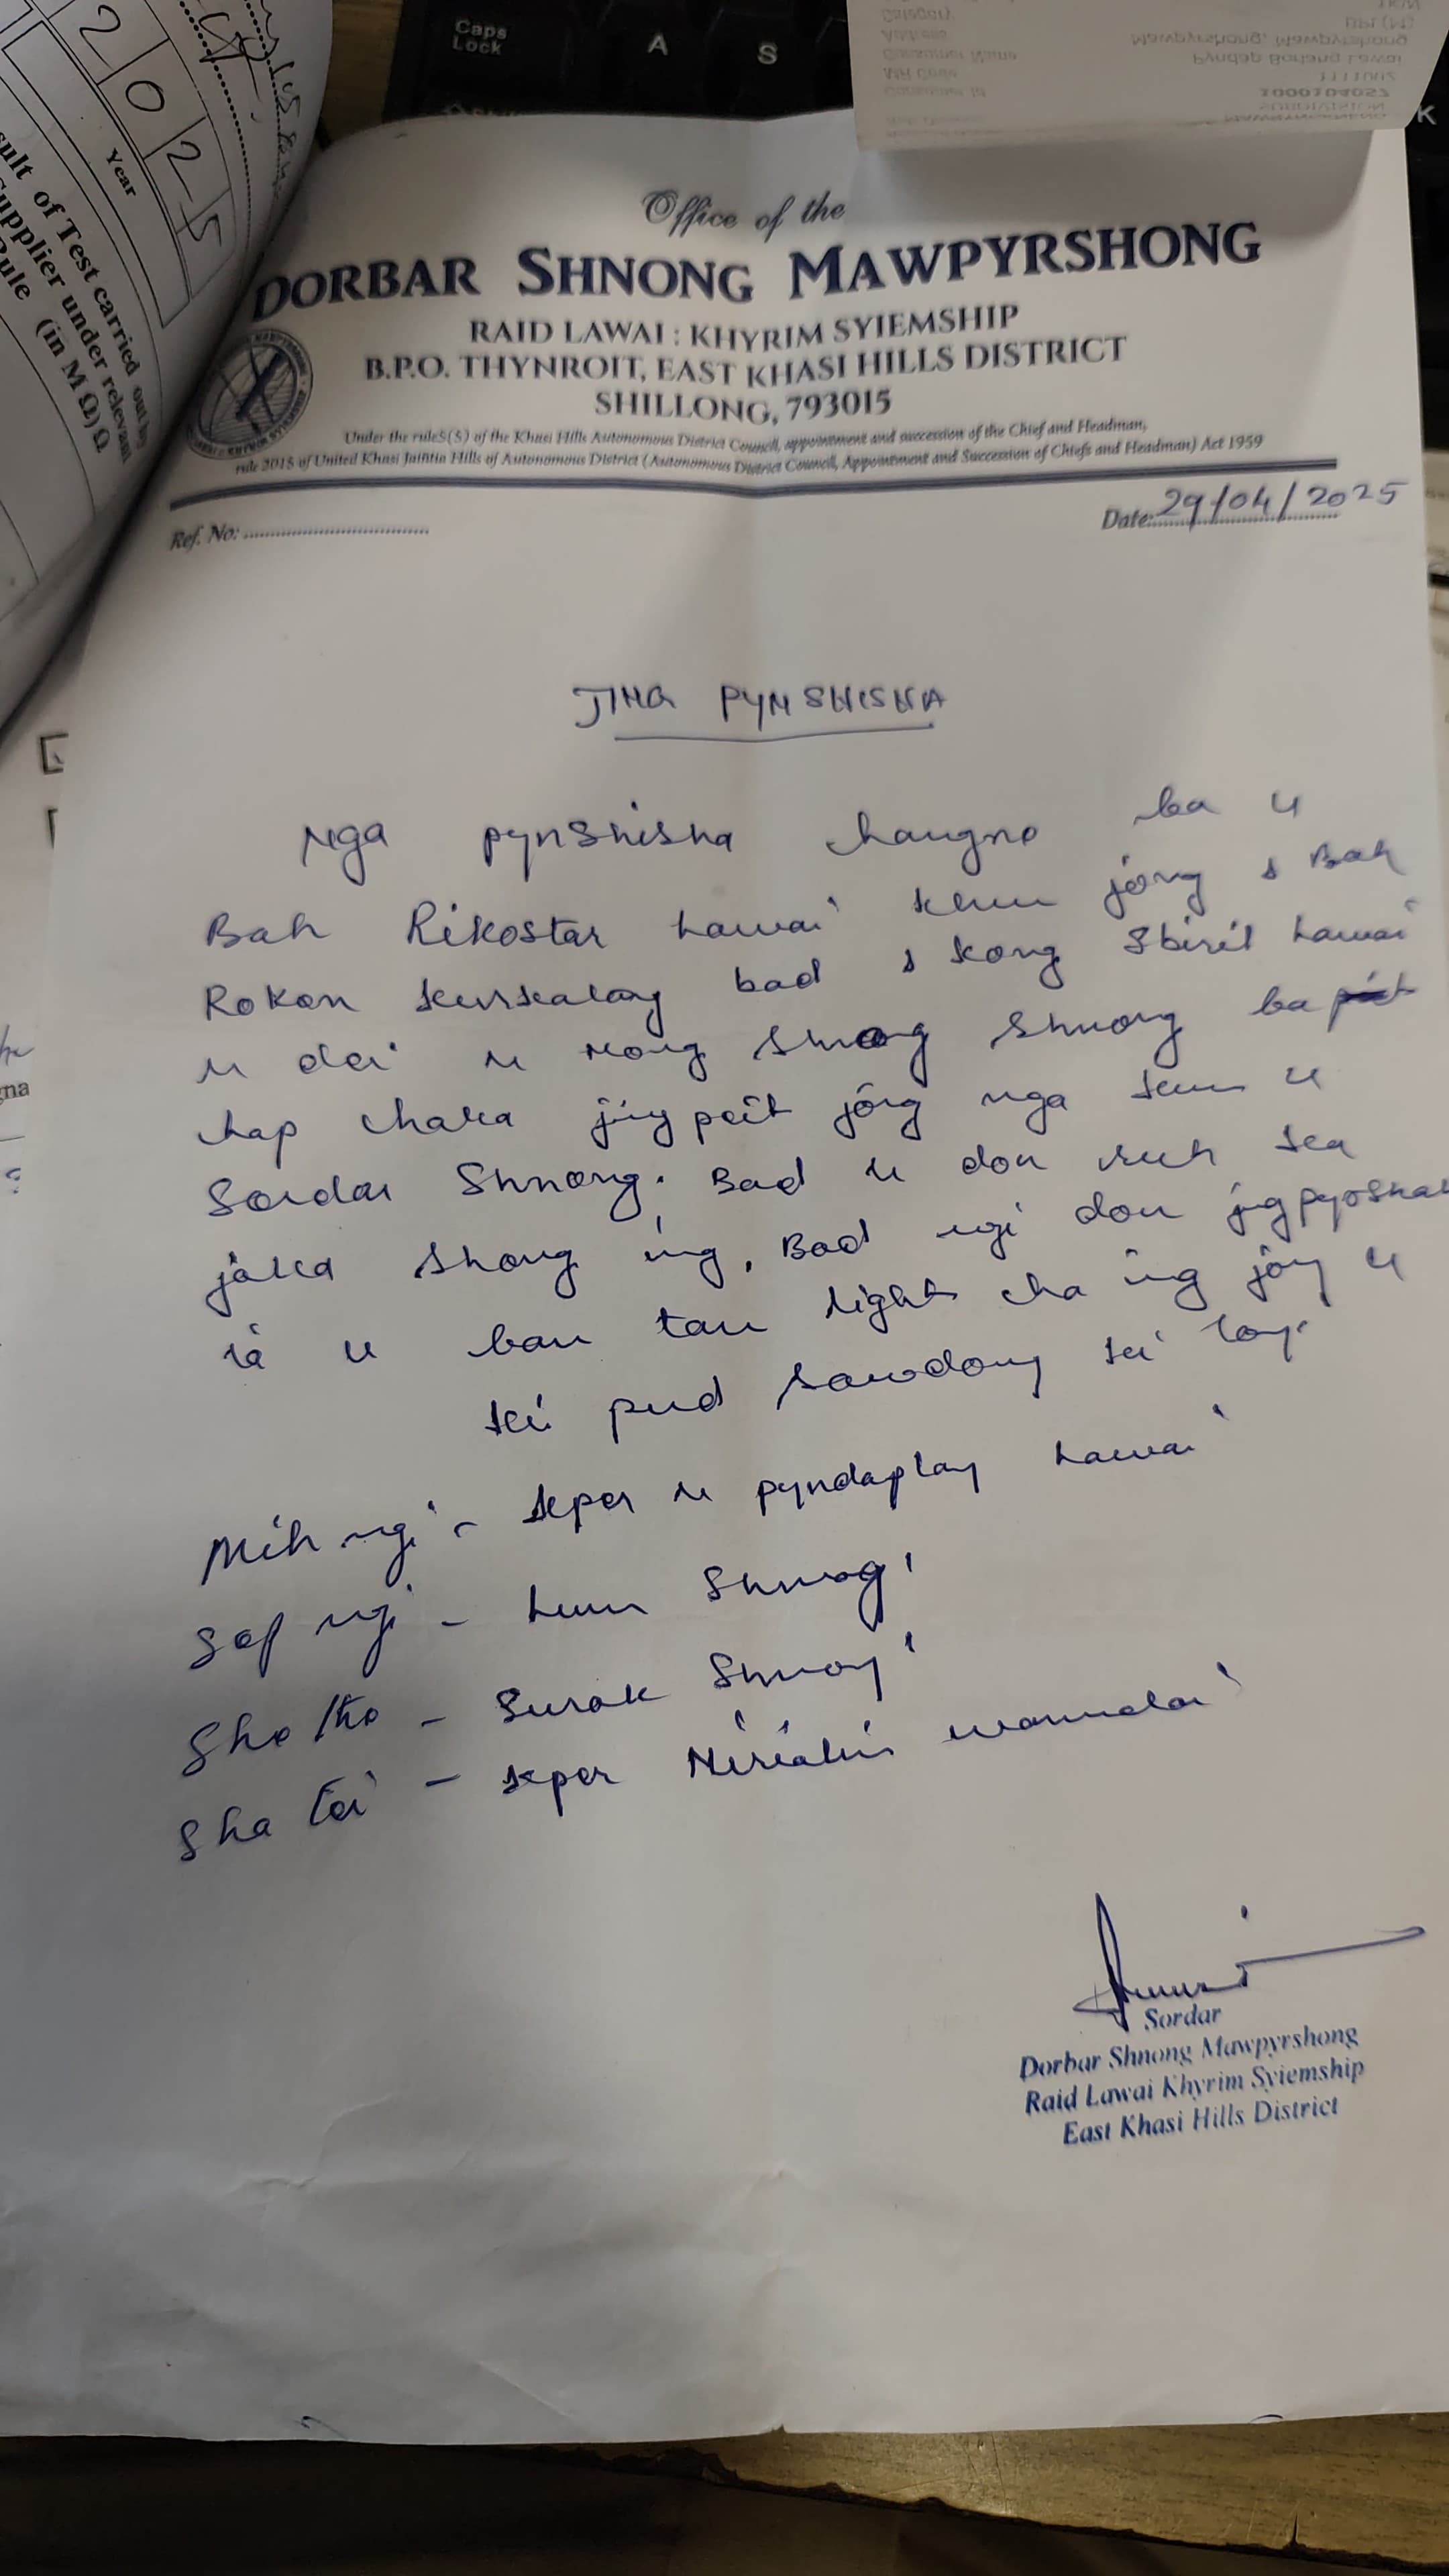 Caps
Lock
A
S
K
2 0 2 5
Year
of Test carried out by
upplier under relevant
Rule (in M Ω) Ω
Category
Address
Consumer Name
MR Code
Consumer Id
Mawpyrshong, Mawpyrshong
1111002
1000104057
SUBDIVISION
Office of the
DORBAR SHNONG MAWPYRSHONG
RAID LAWAI : KHYRIM SYIEMSHIP
B.P.O. THYNROIT, EAST KHASI HILLS DISTRICT
SHILLONG, 793015
Under the rule5(S) of the Khasi Hills Autonomous District Council, appointment and succession of the Chief and Headman,
rule 2015 of United Khasi Jaintia Hills of Autonomous District (Autonomous District Council, Appointment and Succession of Chiefs and Headman) Act 1959
Ref. No:
Date: 29/04/2025
JING PYNSHISHA
Nga pynshisha hangne ba u
Bah Rikostar Lawai khun jong Bah
Rokon bad kong Lawai
u dei u nong shnong shnong ba
hap jingpeit jong nga kum u
Sordar Shnong. Bad u don ruh ka
jaka shong ing, Bad ngi don
ïa u ban tan light sha ing jong u
ki pud sawdong ki long
Mih ngi - kper u Lawai
Sep ngi - Lum Shnong
- Surok Shnong
Sha - kper
Sordar
Dorbar Shnong Mawpyrshong
Raid Lawai Khyrim Syiemship
East Khasi Hills District